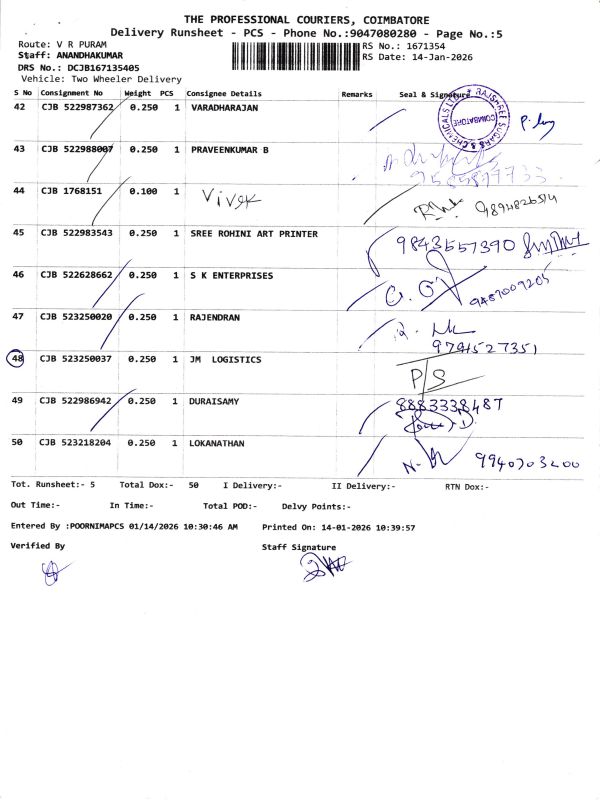 THE PROFESSIONAL COURIERS, COIMBATORE
Delivery Runsheet - PCS - Phone No.:9047080280 - Page No.:5
Route: V R PURAM
RS No.: 1671354
Staff: ANANDHAKUMAR
RS Date: 14-Jan-2026
DRS No.: DCJB167135405
Vehicle: Two Wheeler Delivery
S No Consignment No Weight PCS Consignee Details Remarks Seal & Signature
42 CJB 522987362 0.250 1 VARADHARAJAN
RAJSHREE SUGARS & CHEMICALS LTD
COIMBATORE
43 CJB 522988007 0.250 1 PRAVEENKUMAR B
44 CJB 1768151 0.100 1 Vivek
45 CJB 522983543 0.250 1 SREE ROHINI ART PRINTER
9843557390
46 CJB 522628662 0.250 1 S K ENTERPRISES
9487009205
47 CJB 523250020 0.250 1 RAJENDRAN
9791527351
48 CJB 523250037 0.250 1 JM LOGISTICS
P/S
49 CJB 522986942 0.250 1 DURAISAMY 8883338487
50 CJB 523218204 0.250 1 LOKANATHAN
9940703200
Tot. Runsheet:- 5 Total Dox:- 50 I Delivery:- II Delivery:- RTN Dox:-
Out Time:- In Time:- Total POD:- Delvy Points:-
Entered By :POORNIMAPCS 01/14/2026 10:30:46 AM Printed On: 14-01-2026 10:39:57
Verified By Staff Signature